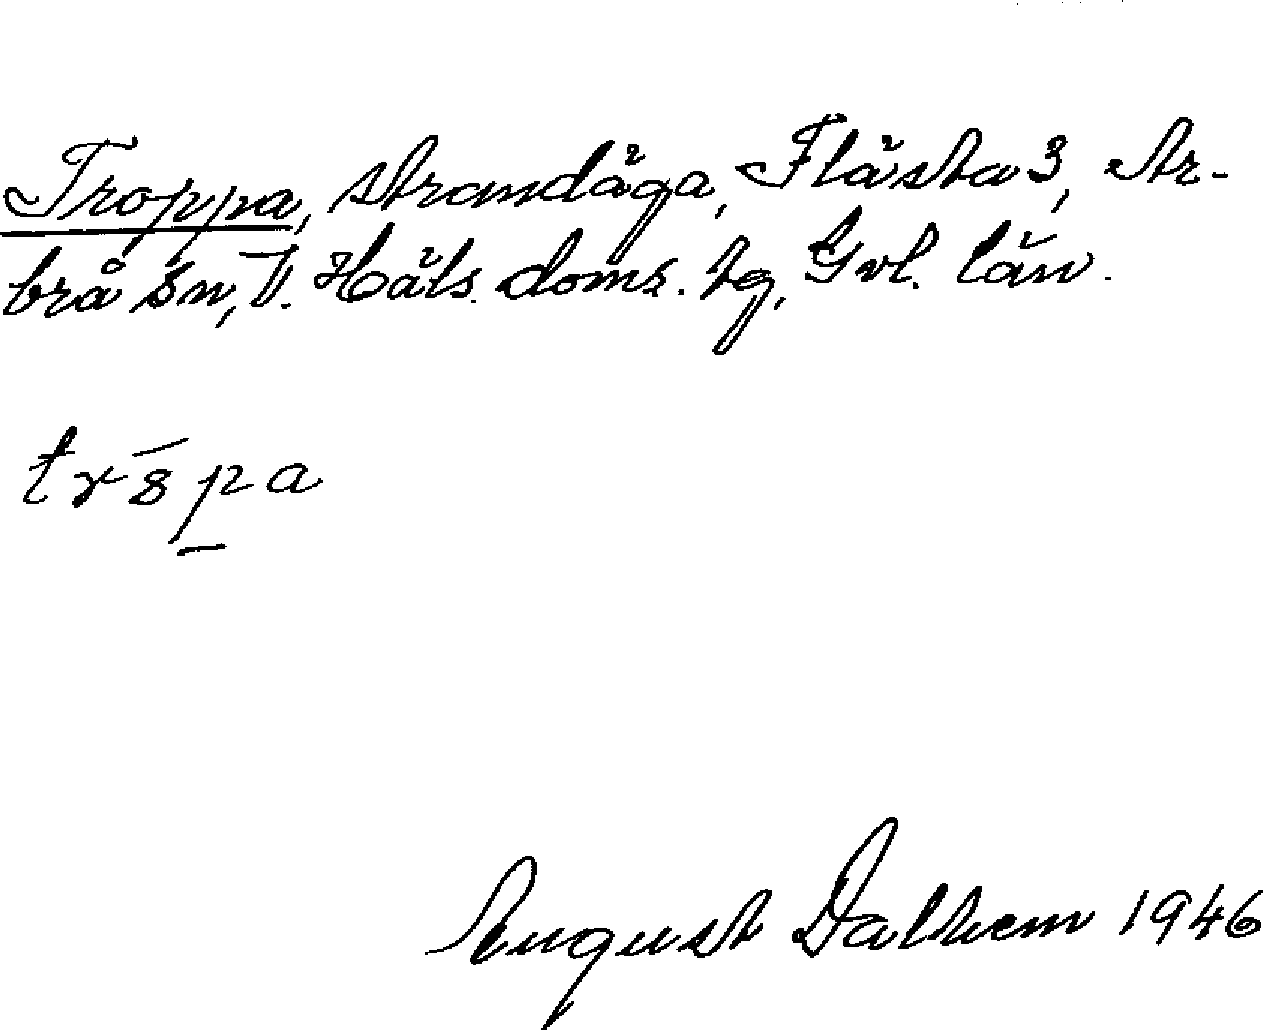 Troppa, strandäga, Flästa 3, Ar-
brå sn, V. Häls. doms. tg, Gvl. län.
trs̄pa
August Dalhem 1946